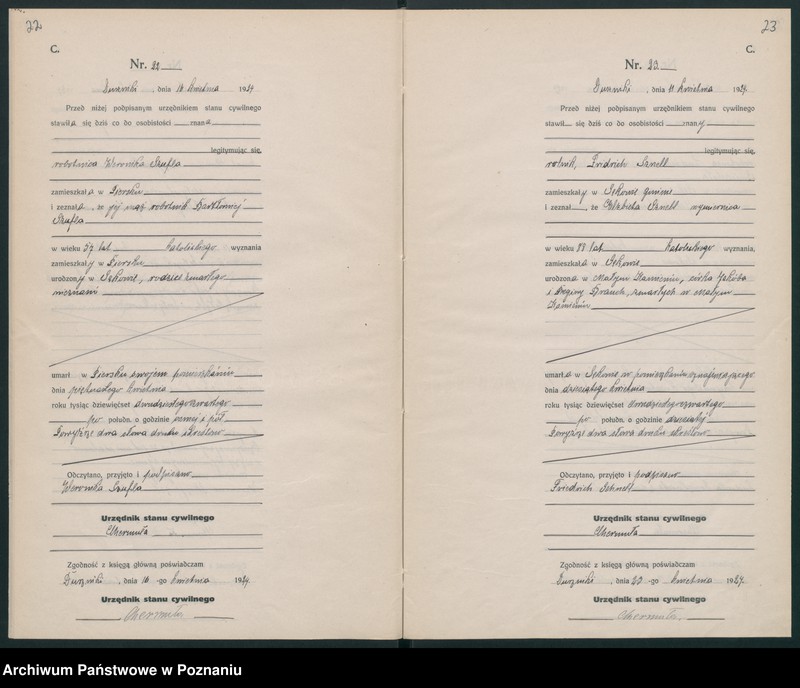 22
C.
Nr. 22
, dnia 16 kwietnia 1924
Przed niżej podpisanym urzędnikiem stanu cywilnego
stawiła się dziś co do osobistości znana
legitymując się,
robotnica Weronika Szufla
zamieszkała w
i zeznała, że jej mąż robotnik Bartłomiej
Szufla
w wieku 57 lat katolickiego wyznania
zamieszkały w
urodzony w Sękowie, rodzice zmarłego
nieznani
umarł w swojem pomieszkaniu
dnia kwietnia
roku tysiąc dziewięćset dwudziestegoczwartego
po połudn. o godzinie i pół
Powyższe dwa słowa druku skreślono
Odczytano, przyjęto i podpisano
Weronika Szufla
Urzędnik stanu cywilnego
Zgodność z księgą główną poświadczam
Duszniki, dnia 16-go kwietnia 1924
Urzędnik stanu cywilnego
23
C.
Nr. 23
, dnia 11 kwietnia 1924.
Przed niżej podpisanym urzędnikiem stanu cywilnego
stawił się dziś co do osobistości znany
legitymując się,
rolnik, Fridrich
zamieszkały w Sękowie gminie
i zeznał, że Elżbieta wymiernica
w wieku lat katolickiego wyznania,
zamieszkała w Sękowie
urodzona w Małym córka Jakóba
i Reginy zmarłych w Małym
umarła w Sękowie w pomieszkaniu
dnia dziesiątego kwietnia
roku tysiąc dziewięćset dwudziestegoczwartego
po połudn. o godzinie dziesiątej
Powyższe dwa słowa druku skreślono
Odczytano, przyjęto i podpisano
Friedrich
Urzędnik stanu cywilnego
Zgodność z księgą główną poświadczam
Duszniki, dnia 20-go kwietnia 1924.
Urzędnik stanu cywilnego
Archiwum Państwowe w Poznaniu